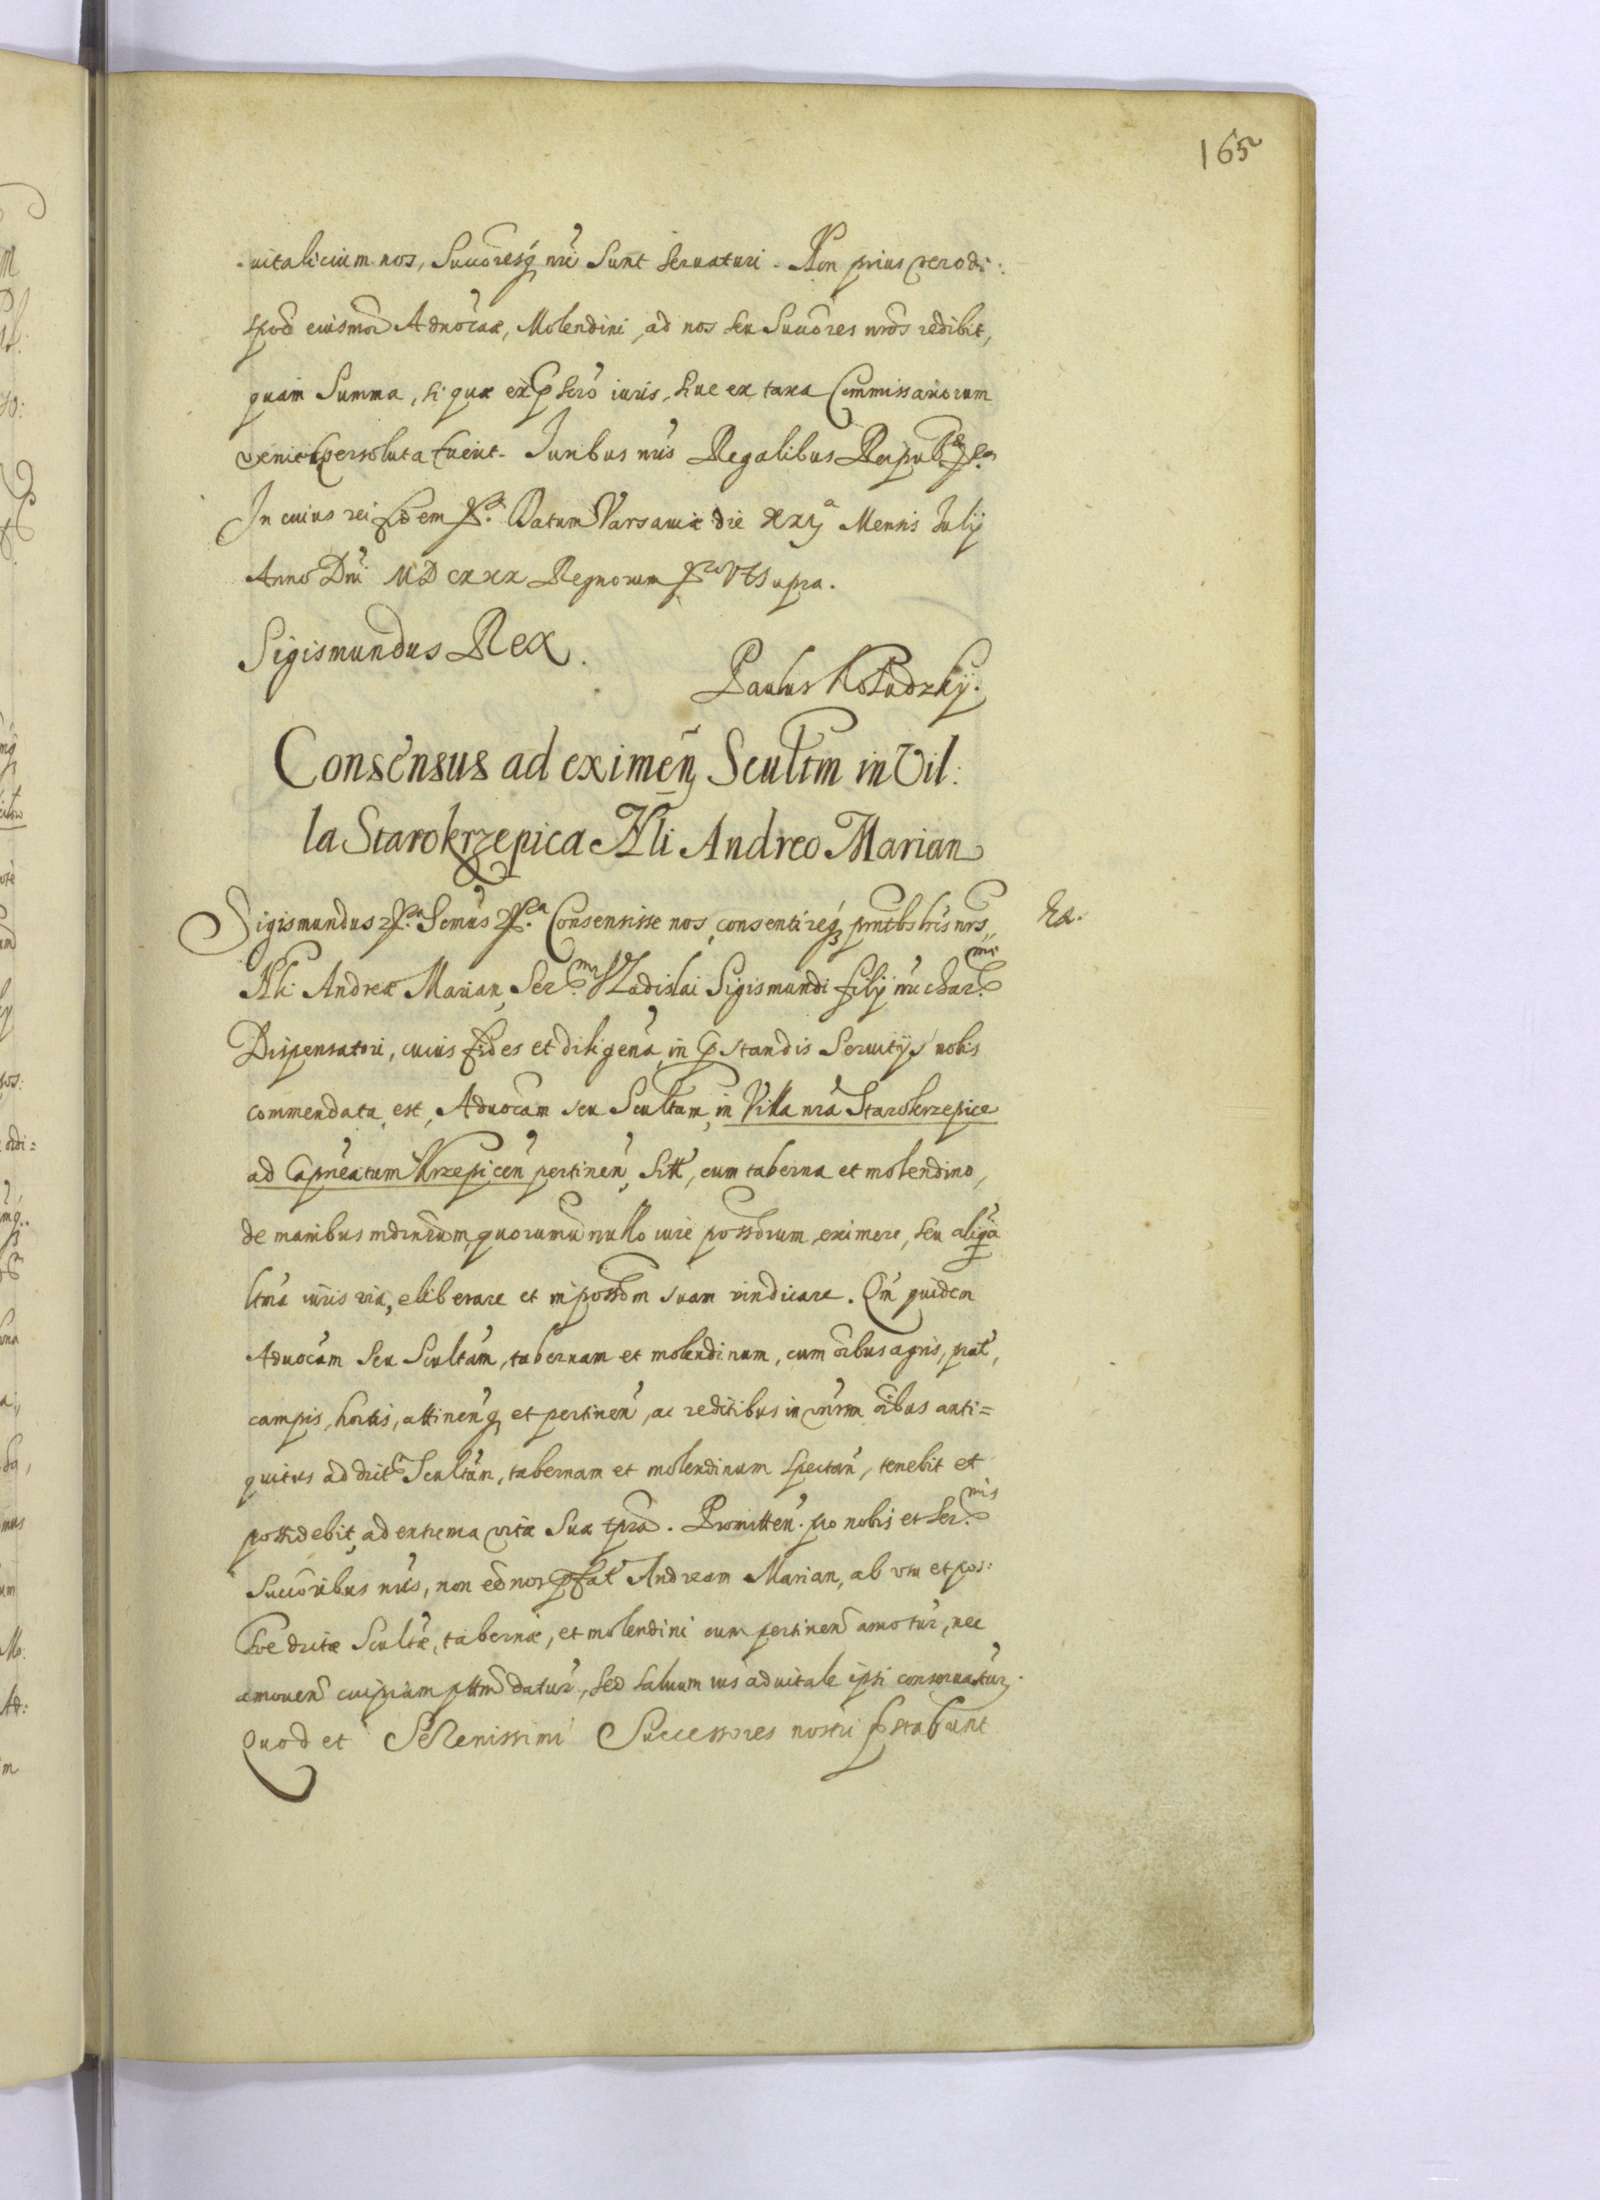 165
vitalicium nos, Succoresq nri sunt seruaturi. Non prius vero di:
spoo eiusmoi Aduocae, Molendini, ad nos seu Succores nros redibit,
quam Summa, si quae ex iuris, siue ex taxa Commissariorum
persoluta fuerit. Iuribus nris Regalibus Reipub
In cuius rei fidem Datum Varsauiae die Mensis Iulij
Anno Dni MDCXXX Regnorum Vt Supra.
Sigismundus Rex.
Paulus Kołudzky.
Consensus ad eximen Scultm in Vil:
la Starokrzepica Nli Andreo Marian
Sigismundus Semus Consensisse nos, consentireq prntbs lris nris,
Ea.
Nli Andreae Marian, Ser.mi Vladislai Sigismundi filij nri char.mi
Dispensatori, cuius fides et diligena, in pstandis Seruitijs nobis
commendata est, Aduocam seu Scultam, in Villa nra Starokrzepice
ad Capneatum Krzepicen pertinen, sitt, cum taberna et molendino,
de manibus quorumu nullo iure possorum eximere, seu aliqa
ltma iuris via, eliberare et in possom suam vindicare. Qm quidem
Aduocam seu Scultam, tabernam et molendinum, cum oibus agris, prat,
campis, hortis, attinenq et pertinen, ac reditibus in vnrm oibus anti=
quitus ad dict Scultam, tabernam et molendinum spectan, tenebit et
possidebit, ad extrema vitae suae tpra. Promitten. pro nobis et Ser.mis
Succoribus nris, non eo nos pfat Andream Marian, ab vsu et pos:
soe dictae Scultae, tabernae, et molendini cum pertinen amotur, nec
amouen cuipiam pttm datur, sed saluum ius aduitale ipsi conseruatur.
Quod et Serenissimi Successores nostri pstabunt